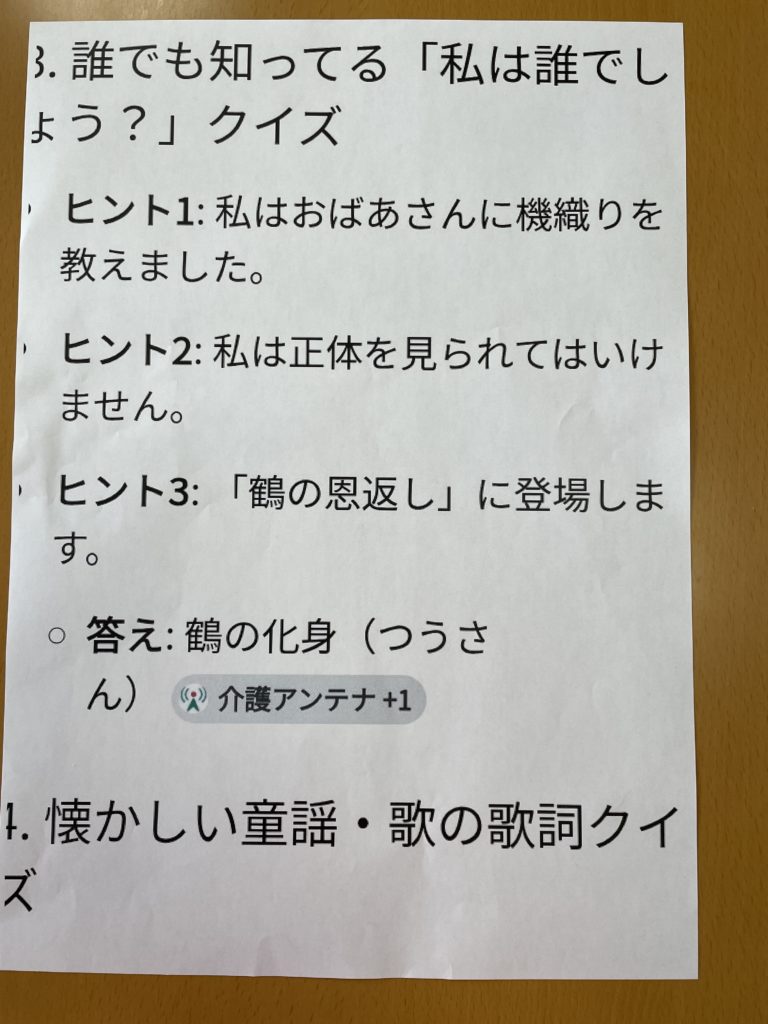 3. 誰でも知ってる「私は誰でし
ょう？」クイズ
ヒント1: 私はおばあさんに機織りを
教えました。
ヒント2: 私は正体を見られてはいけ
ません。
ヒント3: 「鶴の恩返し」に登場しま
す。
答え: 鶴の化身（つうさ
ん） 介護アンテナ +1
4. 懐かしい童謡・歌の歌詞クイ
ズ